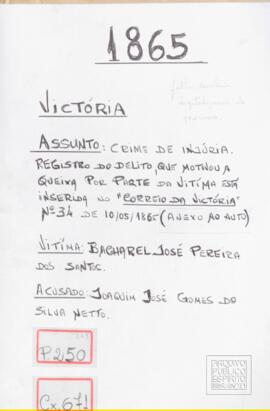 1865
VICTÓRIA
ASSUNTO: CRIME DE INJÚRIA.
REGISTRO DO DELITO, QUE MOTIVOU A
QUEIXA POR PARTE DA VITIMA ESTÁ
INSERIDA NO "CORREIO DA VICTÓRIA"
Nº 34 DE 10/05/1865 (ANEXO AO AUTO)
VITIMA: BACHAREL JOSÉ PEREIRA
DOS SANTOS.
ACUSADO: JOAQUIM JOSÉ GOMES DO
SILVA NETTO.
P.250
Cx.671
ARQUIVO
PÚBLICO
ESPÍRITO
SANTO